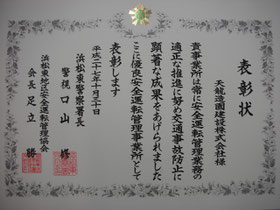 表彰状
天龍造園建設株式会社様
貴事業所は常に安全運転管理業務の
適正な推進に努め交通事故防止に
顕著な成果をあげられました
ここに優良安全運転管理事業所として
表彰します
平成二十七年十月三十日
浜松東警察署長
警視 口山 修
浜松東地区安全運転管理協会
会長 足立 勝